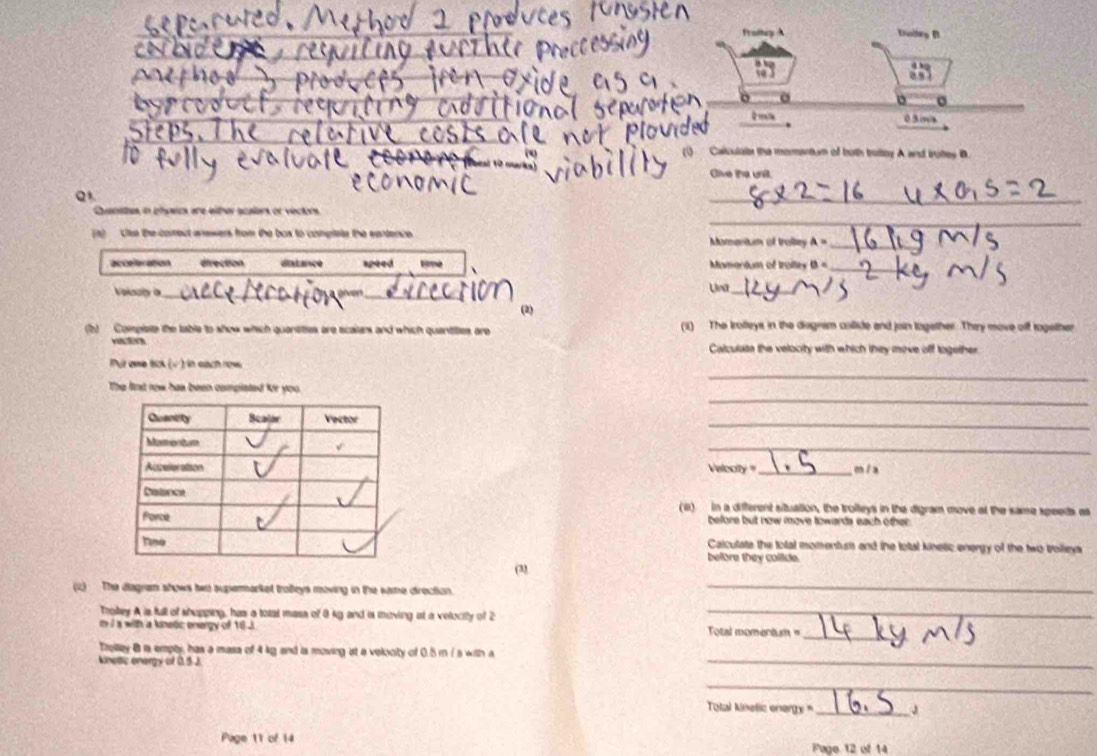 seperated. Method 2 produces tungsten
carbide, requiring further proccessing
method 3 produces iron oxide as a
byproduct, requiring additional seperation
steps. The relative costs are not provided
to fully evaluate economic viability
Q1.
Quantities in physics are either scalars or vectors.
(a) Use the correct answers from the box to complete the sentence.
acceleration direction distance speed time
Velocity is acceleration given direction
(2)
(b) Complete the table to show which quantities are scalars and which quantities are
vectors.
Put one tick (✓) in each row.
The first row has been completed for you.
Quantity Scalar Vector
Momentum ✓ ✓
Acceleration ✓
Distance ✓
Force ✓
Time ✓
(3)
(c) The diagram shows two supermarket trolleys moving in the same direction.
Trolley A is full of shopping, has a total mass of 8 kg and is moving at a velocity of 2
m / s with a kinetic energy of 16 J.
Trolley B is empty, has a mass of 4 kg and is moving at a velocity of 0.5 m / s with a
kinetic energy of 0.5 J.
Page 11 of 14
Trolley A Trolley B
8 kg 4 kg
16 J 0.5 J
2 m/s 0.5 m/s
(i) Calculate the momentum of both trolley A and trolley B.
Give the unit.
8 x 2 = 16 4 x 0,5 = 2
Momentum of trolley A = 16 kg m/s
Momentum of trolley B = 2 kg m/s
Unit kg m/s
(ii) The trolleys in the diagram collide and join together. They move off together.
Calculate the velocity with which they move off together.
Velocity = 1.5 m / s
(iii) In a different situation, the trolleys in the digram move at the same speeds as
before but now move towards each other.
Calculate the total momentum and the total kinetic energy of the two trolleys
before they collide.
Total momentum = 14 kg m/s
Total kinetic energy = 16.5 J
Page 12 of 14